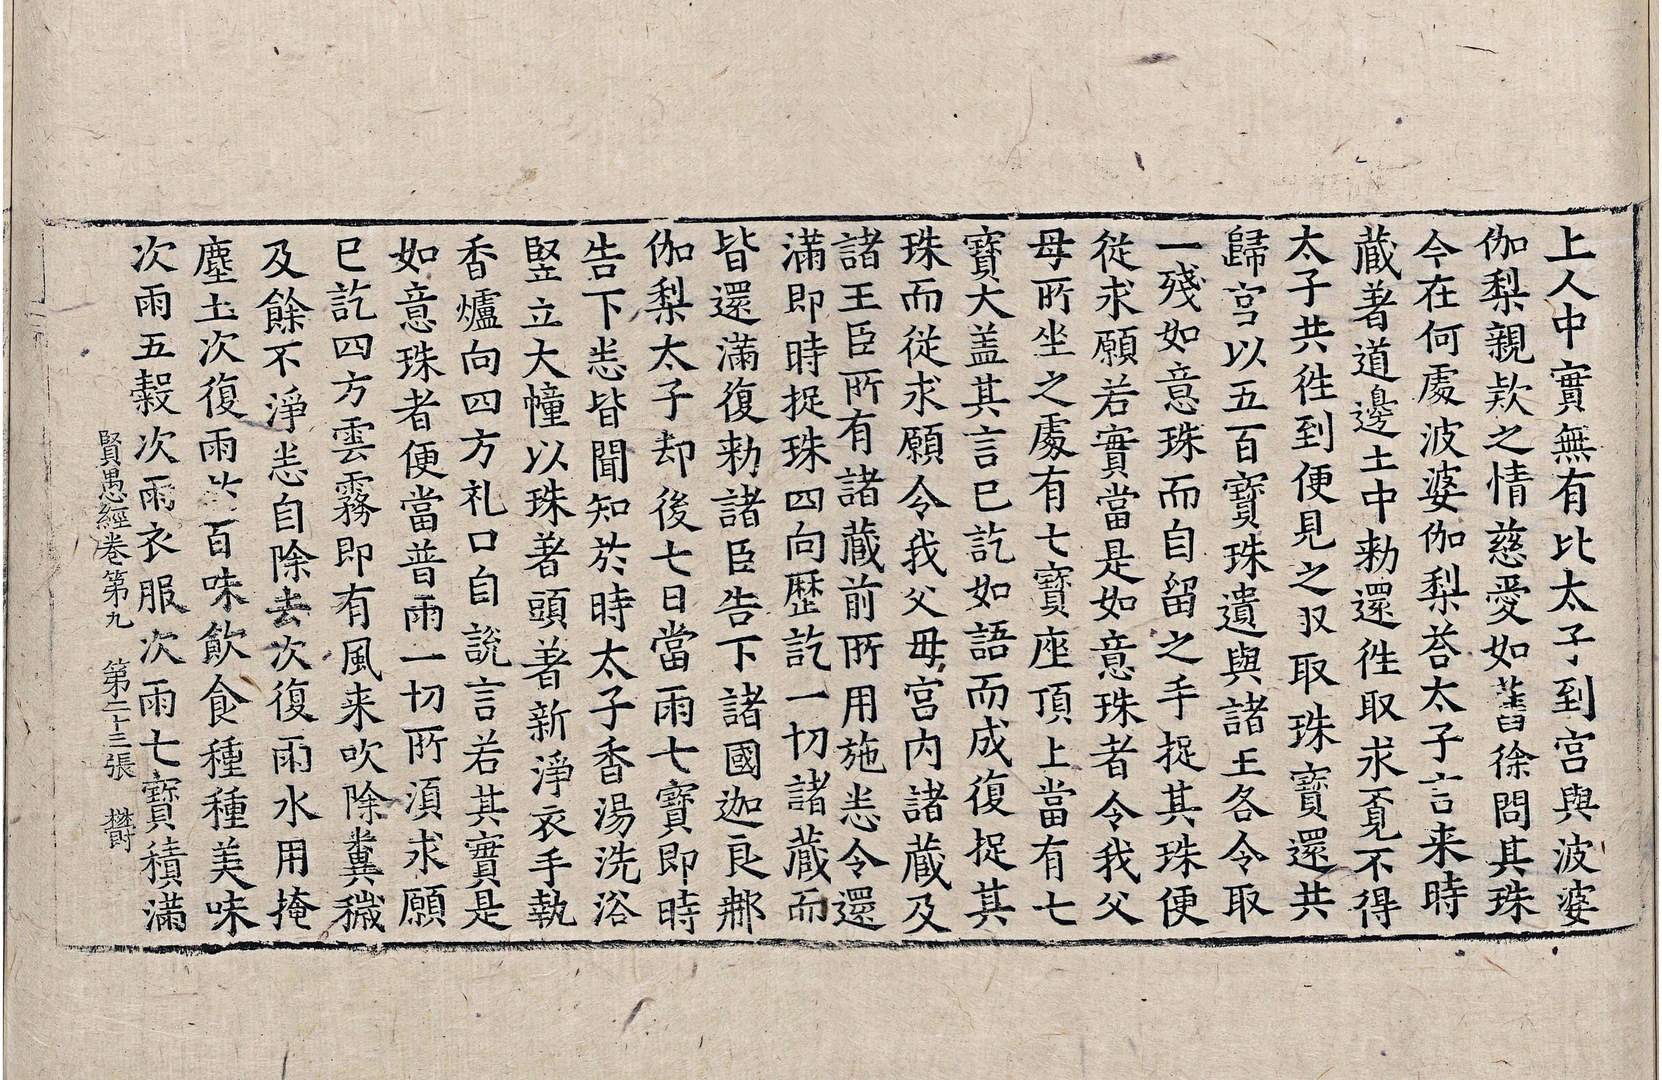 上人中實無有比太子到宮與波婆
伽梨親欵之情慈愛如舊徐問其珠
今在何處波婆伽梨荅太子言来時
藏著道邊土中勑還徃取求覓不得
太子共徃到便見之㕛取珠寶還共
歸宮以五百寶珠遺與諸王各令取
一殘如意珠而自留之手捉其珠便
從求願若實當是如意珠者令我父
母所坐之處有七寶座頂上當有七
寶大盖其言已訖如語而成復捉其
珠而從求願令我父母宮內諸藏及
諸王臣所有諸藏前所用施悉令還
滿即時捉珠四向歷訖一切諸藏而
皆還滿復勑諸臣告下諸國迦良那
伽梨太子却後七日當雨七寶即時
告下悉皆聞知於時太子香湯洗浴
竪立大幢以珠著頭著新淨衣手執
香爐向四方礼口自說言若其實是
如意珠者便當普雨一切所湏求願
已訖四方雲霧即有風来吹除糞穢
及餘不淨悉自除去次復雨水用掩
塵土次復雨百味飲食種種美味
次雨五穀次雨衣服次雨七寶積滿
賢愚經卷第九 第二十三張 欎